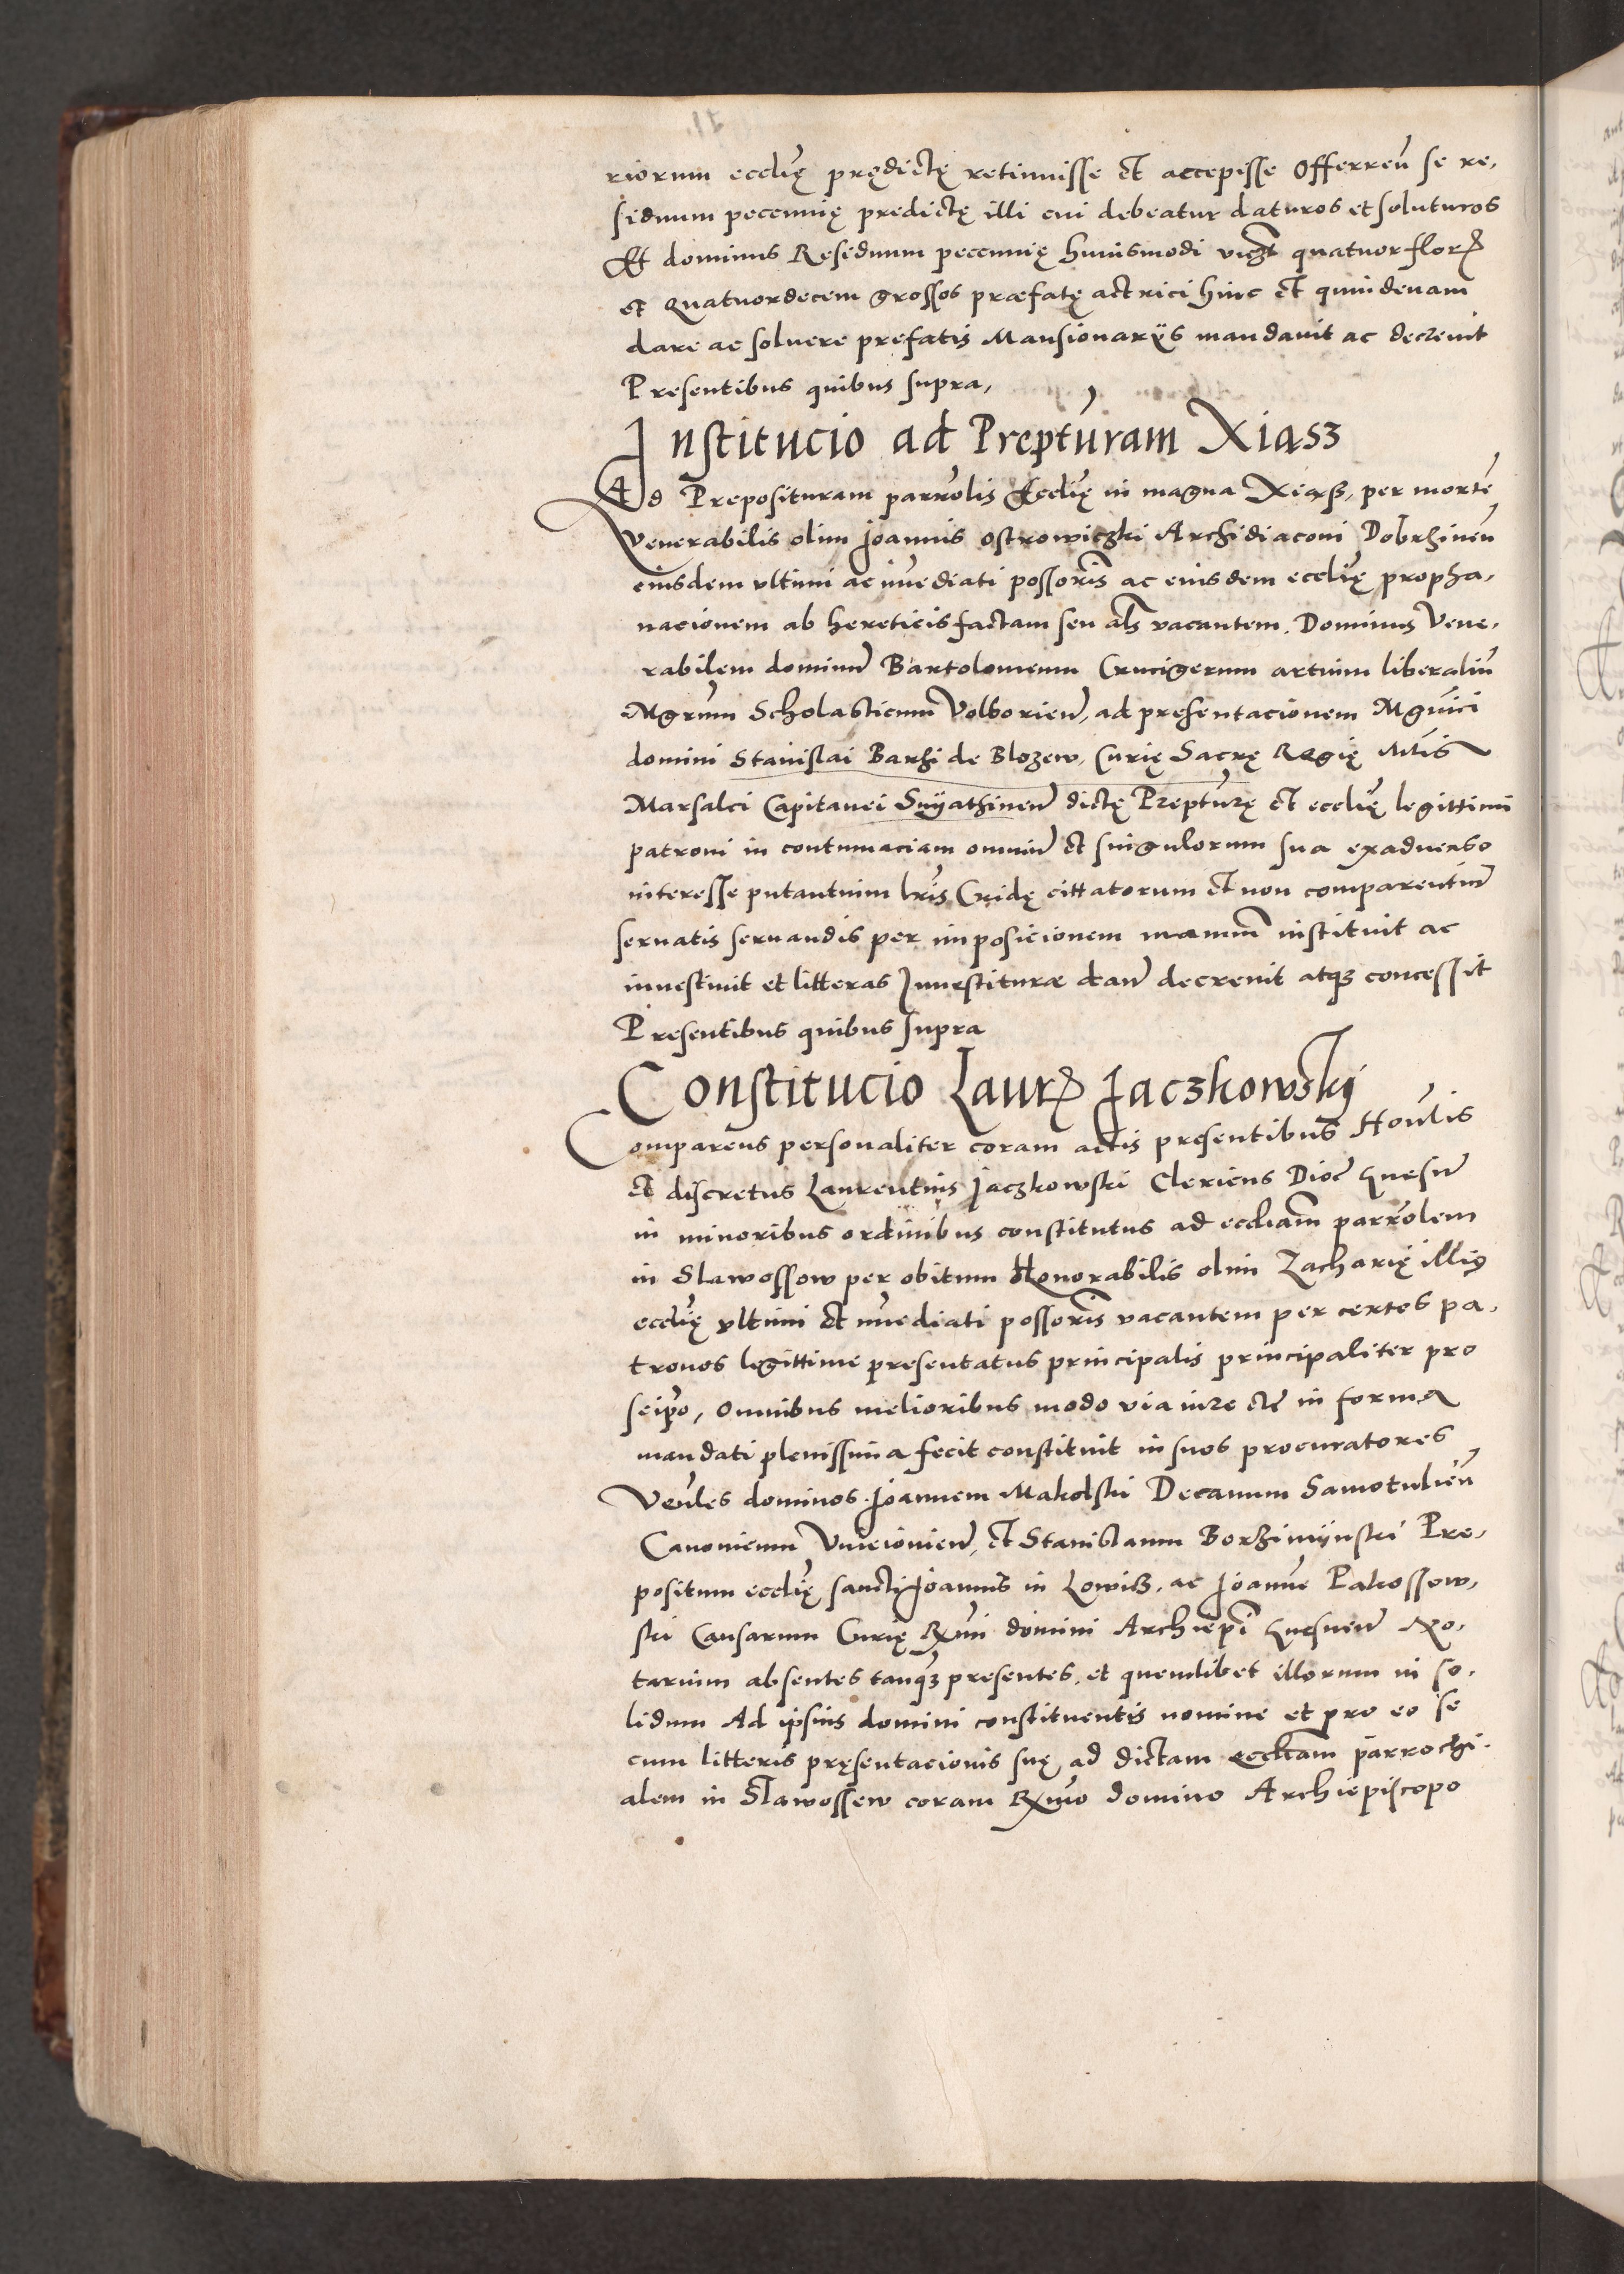 riorum eccłię prędictę retinuisse et accepisse Offerreñ se re,
siduum pecunnię predictę illi cui debeatur daturos et soluturos
Et dominus Residuum pecunnię huiusmodi viczt quatuor flor
et quatuordecem grossos praefatę actrici hinc et quindenam
dare ac soluere prefatis Mansionarÿs mandauit ac decreuit
Presentibus quibus supra,
Institucio ad Prepturam Xiasz
Ad Preposituram parrolis Eccłię in magna Xiąsz, per mortē
Venerabilis olim Joannis Ostrowiczki Archidiaconi Dobrzineñ
eiusdem vltimi ac imediati possoris ac eiusdem eccłię propha,
nacionem ab hereticis factam seu als vacantem. Dominus Vene,
rabilem dominū Bartolomeum Crucigerum artium liberaliū
Mgrum Scholasticum Volborień, ad presentacionem Mgnici
domini Stanislai Barzi de Blozew, Curię Sacrę Regię Mtis
Marsalci Capitanei Snÿathineñ dictę Prepturę et eccłię legittimi
patroni in contumaciam omniū et singulorum sua exaduerso
interesse putantium lris Cridę cittatorum et non comparentiū
seruatis seruandis per imposicionem manuum instituit ac
inuestiuit et litteras Inuestiturae dań decreuit atq3 concessit
Presentibus quibus supra
Constitucio Laur Jaczkowskij
Comparens personaliter coram actis presentibus Honlis
et discretus Laurentius Jaczkowski Clericus Dioc Gnesñ
in minoribus ordinibus constitutus ad eccliam parrolem
in Slawossow per obitum Honorabilis olim Zacharię illius
eccłię vltimi et imediati possoris vacantem per certos pa,
tronos legittime presentatus principalis principaliter pro
seipo, omnibus melioribus modo via iure etc in forma
mandati plenissima fecit constituit in suos procuratores
Venles dominos Joannem Makolski Decanum Samotulień
Canonicum Vnieionień, et Stanislaum Borzimÿnski Pre,
positum eccłię sancti Joannis in Lowisz, ac Joannē Pakossow,
ski Causarum Curię Rxmi domini Archiepi Gnesneñ No,
tarium absentes tanq3 presentes, et quemlibet illorum in so,
lidum Ad ipsius domini constituentis nomine et pro eo se
cum litteris pręsentacionis suę ad dictam eccliam parrochi,
alem in Slawossew coram Rxmo domino Archiepiscopo